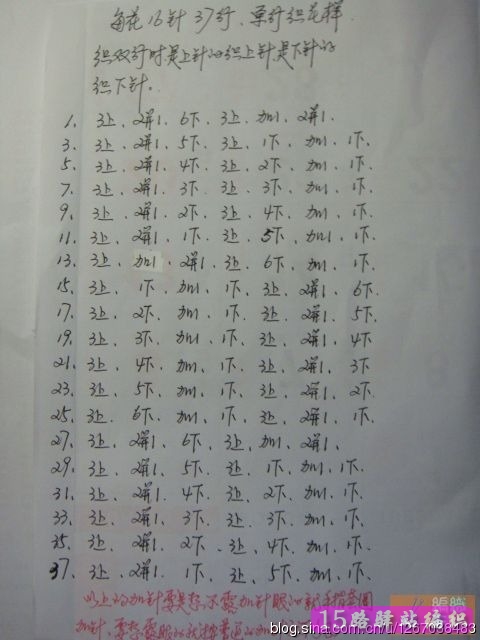 每花16针37行、单行织花样
织双行时是上针的织上针是下针的
织下针。
1. 3上、2拼1. 6下、3上、加1、2拼1.
3. 3上、2拼1. 5下、3上、1下、加1、1下.
5. 3上、2拼1. 4下、3上、2下、加1、1下.
7. 3上、2拼1. 3下、3上、3下、加1、1下.
9. 3上、2拼1. 2下、3上、4下、加1、1下.
11. 3上、2拼1. 1下、3上、5下、加1、1下.
13. 3上、加1、2拼1、3上、6下、加1、1下.
15. 3上、1下、加1、1下、3上、2拼1、6下.
17. 3上、2下、加1、1下、3上、2拼1、5下.
19. 3上、3下、加1、1下、3上、2拼1、4下
21. 3上、4下、加1、1下、3上、2拼1、3下
23. 3上、5下、加1、1下、3上、2拼1、2下.
25. 3上、6下、加1、1下、3上、2拼1、1下.
27. 3上、2拼1、6下、3上、加1、2拼1.
29. 3上、2拼1、5下、3上、1下、加1、1下.
31. 3上、2拼1、4下、3上、2下、加1、1下.
33. 3上、2拼1、3下、3上、3下、加1、1下.
35. 3上、2拼1、2下、3上、4下、加1、1下.
37. 3上、2拼1、1下、3上、5下、加1、1下.
以上的加针要是想不露加针眼的就
加针、要想露眼的就按普通的加
15路驿站编织
blog.sina.com.cn/u/1267098183